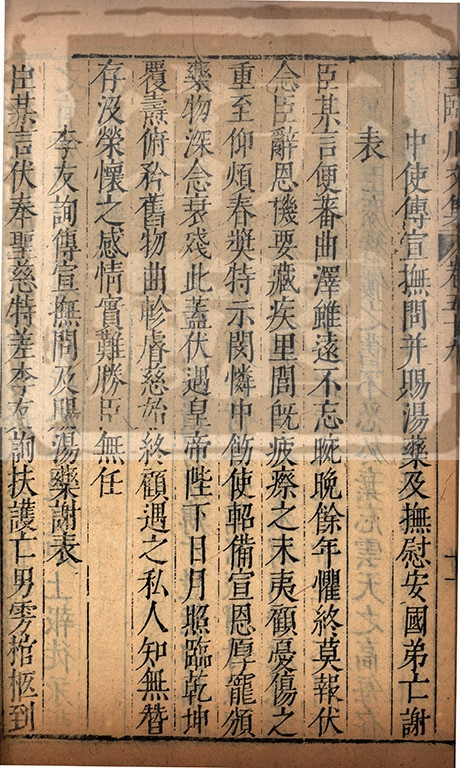 王臨川文集 卷五十九 十一
中使傳宣撫問并賜湯藥及撫慰安國弟亡謝
表
臣某言便蕃曲澤雖遠不忘晼晚餘年懼終莫報伏
念臣辭恩機要藏疾里閭旣疲瘵之未夷顧憂傷之
重至仰煩春奬特示閔憐中飭使軺備宣恩厚寵頒
藥物深念衰殘此蓋伏遇皇帝陛下日月照臨乾坤
覆燾俯矜舊物曲軫睿慈始終顧遇之私人知無替
存沒榮懷之感情實難勝臣無任
李友詢傳宣撫問及賜湯藥謝表
臣某言伏奉聖慈特差李友詢扶護亡男雱棺柩到